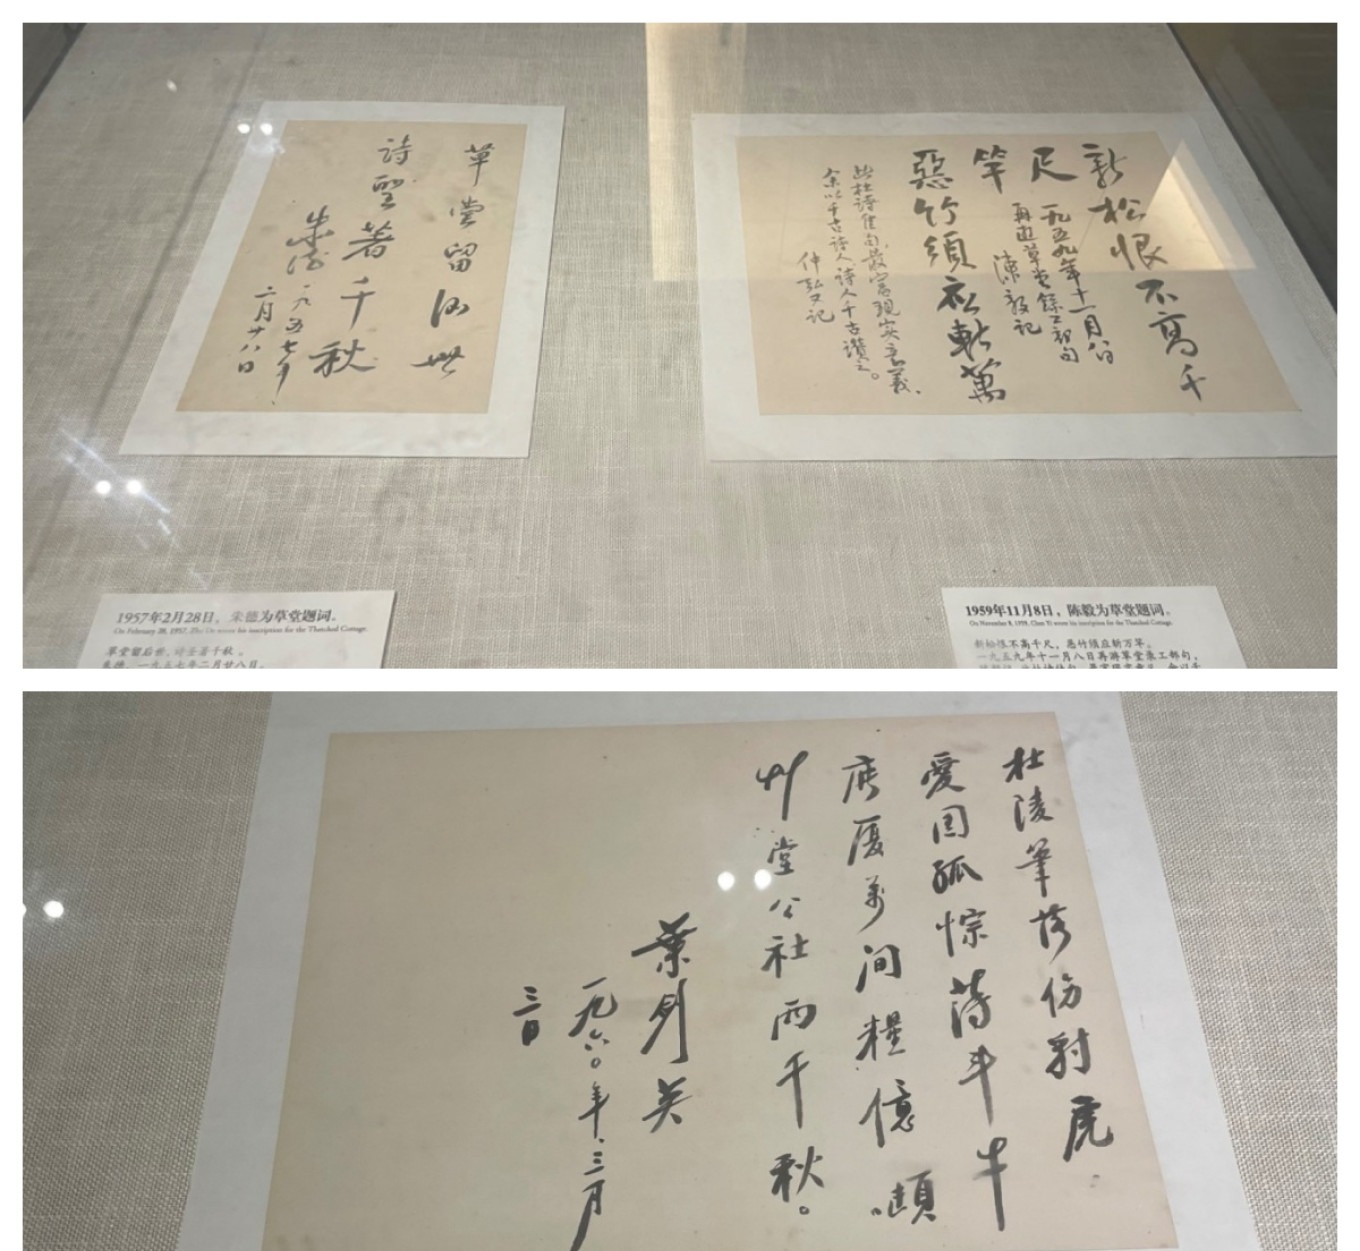 草堂留后世
詩聖著千秋
朱德一九五七年
二月廿八日
新松恨不高千
尺
竿
惡竹須應斬萬
一九五九年十一月八日
再遊草堂餘工部句
陳毅記
此杜詩佳句,最富現實意義,
余以千古詩人,詩人千古讚之。
仲弘又記
1957年2月28日,朱德为草堂题词。
On February 28, 1957, Zhu De wrote his inscription for the Thatched Cottage.
草堂留后世,诗圣著千秋。
朱德,一九五七年二月廿八日。
1959年11月8日,陈毅为草堂题词。
On November 8, 1959, Chen Yi wrote his inscription for the Thatched Cottage.
新松恨不高千尺,恶竹须应斩万竿。
一九五九年十一月八日再游草堂录工部句,
杜陵筆落傷豺虎
愛國孤悰薄斗牛
廣厦萬间糧億噸。
艸堂公社两千秋。
葉剑英
一九六〇年、三月
三日